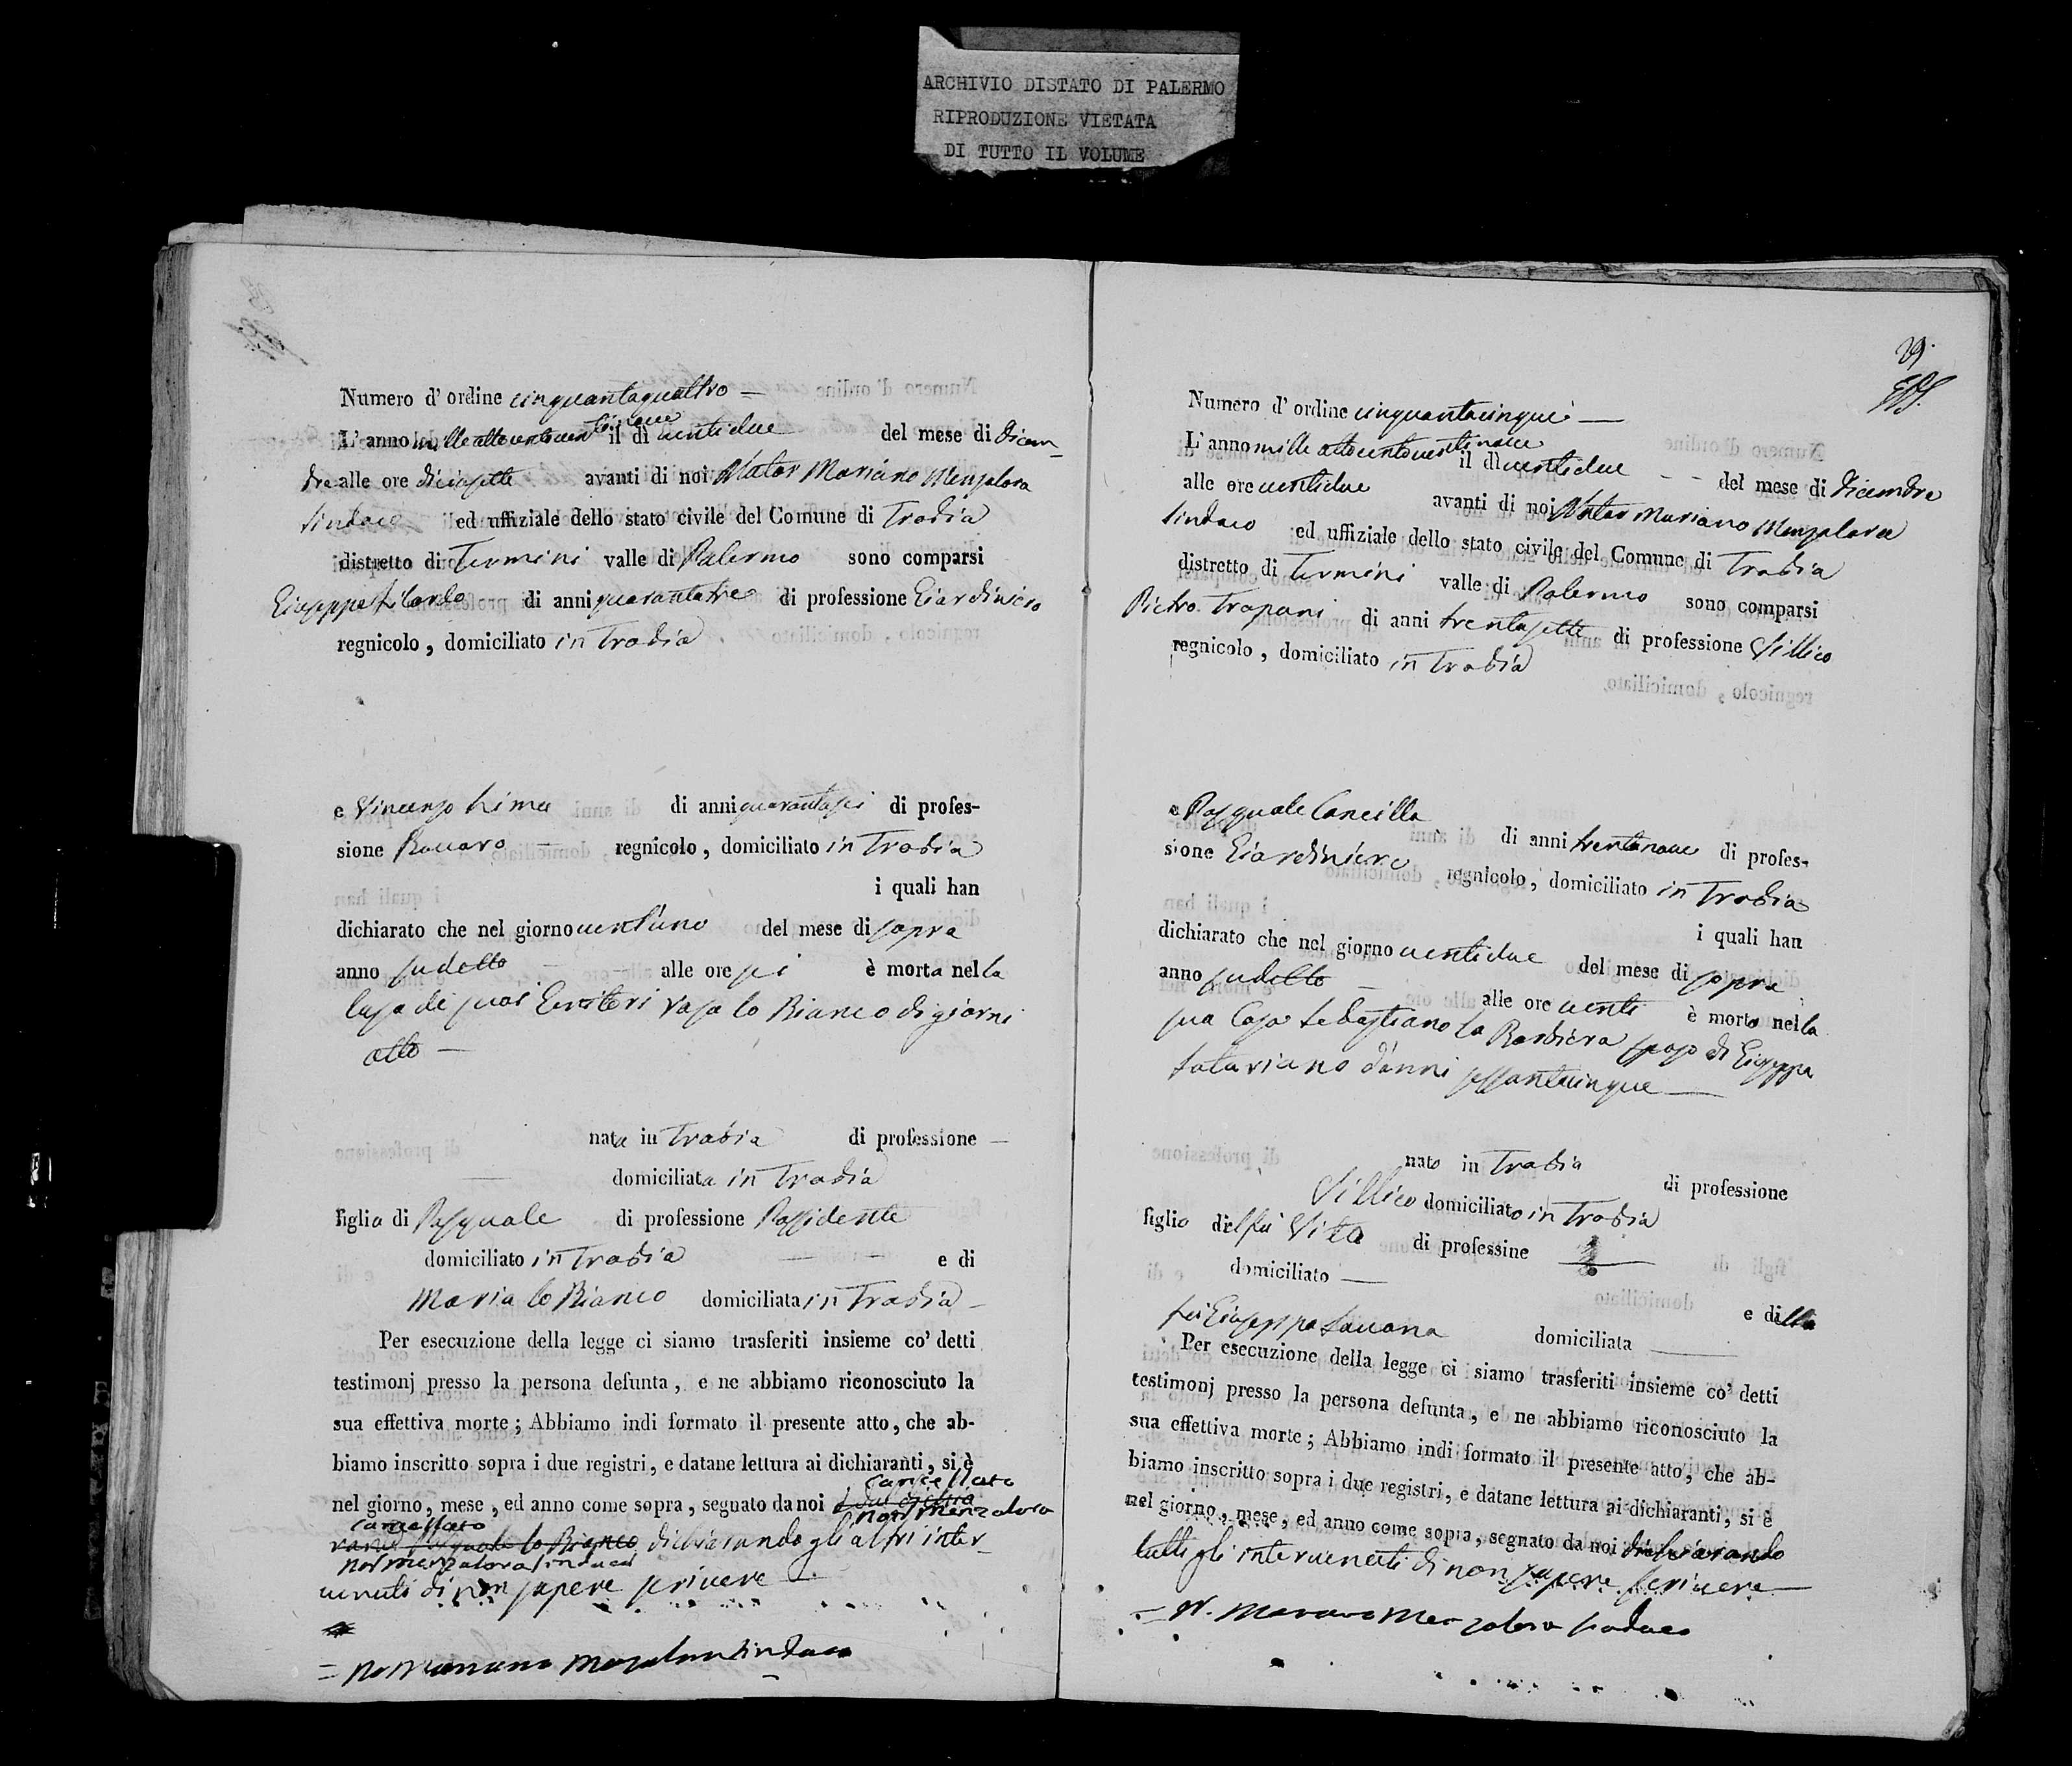 ARCHIVIO DISTATO DI PALERMO
RIPRODUZIONE VIETATA
DI TUTTO IL VOLUME
Numero d' ordine cinquantaquattro =
L' anno mille ottocento ventinove il dì ventidue del mese di Dicem-
bre alle ore diciasette avanti di noi Notar Mariano Menzalora
Sindaco ed uffiziale dello stato civile del Comune di Trabia
distretto di Termini valle di Palermo sono comparsi
Giuseppe Lilardo di anni quarantatre di professione Giardiniero
regnicolo , domiciliato in Trabia
e Vincenzo Lima di anni quarantasei di profes-
sione regnicolo , domiciliato in Trabia
i quali han
dichiarato che nel giorno ventuno del mese di sopra
anno sudetto alle ore sei è morta nella
Casa de suoi Genitori Rosa lo Bianco di giorni
otto —
nata in Trabia di professione —
domiciliata in Trabia
figlia di Pasquale di professione Possidente
domiciliato in Trabia e di
Maria lo Bianco domiciliata in Trabia
Per esecuzione della legge ci siamo trasferiti insieme co' detti
testimonj presso la persona defunta , e ne abbiamo riconosciuto la
sua effettiva morte ; Abbiamo indi formato il presente atto, che ab-
biamo inscritto sopra i due registri, e datane lettura ai dichiaranti, si è
cancellato
nel giorno, mese , ed anno come sopra , segnato da noi
Not Menzalora
cancellato
Pasquale lo Bianco dichiarando gli altri inter-
Not Menzalora Sindaco
venuti di non sapere scrivere
= Not Mariano Menzalora Sindaco
29.
Numero d' ordine cinquantacinque —
L' anno mille ottocento ventinove il dì ventidue del mese di Dicembre
alle ore ventidue avanti di noi Notar Mariano Menzalora
Sindaco ed uffiziale dello stato civile del Comune di Trabia
distretto di Termini valle di Palermo sono comparsi
Pietro Trapani di anni trentasette di professione Villico
regnicolo , domiciliato in Trabia
e Pasquale Cancilla di anni trentanove di profes-
sione Giardiniere regnicolo , domiciliato in Trabia
i quali han
dichiarato che nel giorno ventidue del mese di sopra
anno sudetto alle ore venti è morto nella
sua Casa Sebastiano la Barbiera sposo di Giuseppa
d'anni sessantacinque —
nato in Trabia di professione
Villico domiciliato in Trabia
figlio del fù Vito di professine
domiciliato — e della
fù Giuseppa Savana domiciliata
Per esecuzione della legge ci siamo trasferiti insieme co' detti
testimonj presso la persona defunta , e ne abbiamo riconosciuto la
sua effettiva morte ; Abbiamo indi formato il presente atto, che ab-
biamo inscritto sopra i due registri, e datane lettura ai dichiaranti, si è
nel giorno, mese, ed anno come sopra, segnato da noi dichiarando
tutti gli intervenuti di non sapere scrivere —
= N. Mariano Menzalora Sindaco